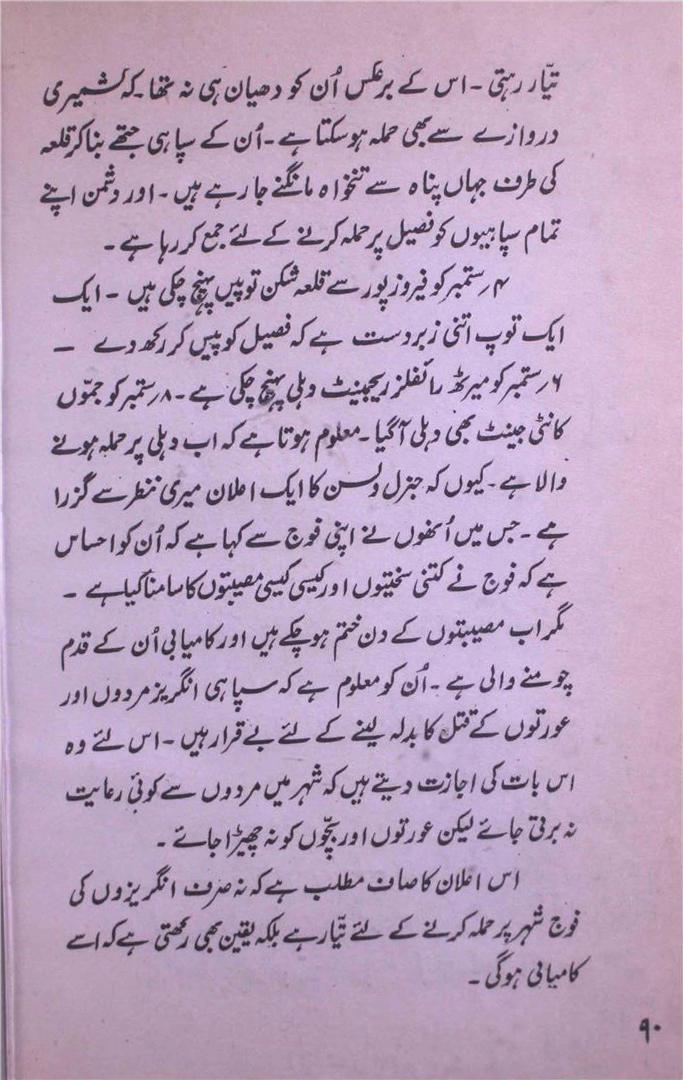 تیّار رہتی ۔ اس کے برعکس اُن کو دھیان ہی نہ تھا ۔ کہ کشمیری
دروازے سے بھی حملہ ہو سکتا ہے ۔ اُن کے سپاہی جتھے بنا کر قلعہ
کی طرف جہاں پناہ سے تنخواہ مانگنے جا رہے ہیں ۔ اور دشمن اپنے
تمام سپاہیوں کو فصیل پر حملہ کرنے کے لئے جمع کر رہا ہے ۔
۴؍ستمبر کو فیروزپور سے قلعہ شکن توپیں پہنچ چکی ہیں ۔ ایک
ایک توپ اتنی زبردست ہے کہ فصیل کو پیس کر رکھ دے ۔
۶؍ستمبر کو میرٹھ رائفلز ریجیمینٹ دہلی پہنچ چکی ہے ۔ ۸؍ستمبر کو جموّں
کانٹی جینٹ بھی دہلی آگیا ۔ معلوم ہوتا ہے کہ اب دہلی پر حملہ ہونے
والا ہے ۔ کیوں کہ جنرل ولسن کا ایک اعلان میری نظر سے گزرا
ہے ۔ جس میں اُنھوں نے اپنی فوج سے کہا ہے کہ اُن کو احساس
ہے کہ فوج نے کتنی سختیوں اور کیسی کیسی مصیبتوں کا سامنا کیا ہے ۔
مگر اب مصیبتوں کے دن ختم ہو چکے ہیں اور کامیابی اُن کے قدم
چومنے والی ہے ۔ اُن کو معلوم ہے کہ سپاہی انگریز مردوں اور
عورتوں کے قتل کا بدلہ لینے کے لئے بے قرار ہیں ۔ اس لئے وہ
اس بات کی اجازت دیتے ہیں کہ شہر میں مردوں سے کوئی رعایت
نہ برتی جائے لیکن عورتوں اور بچّوں کو نہ چھیڑا جائے ۔
اس اعلان کا صاف مطلب ہے کہ نہ صرف انگریزوں کی
فوج شہر پر حملہ کرنے کے لئے تیّار ہے بلکہ یقین بھی رکھتی ہے کہ اسے
کامیابی ہوگی ۔
۹۰